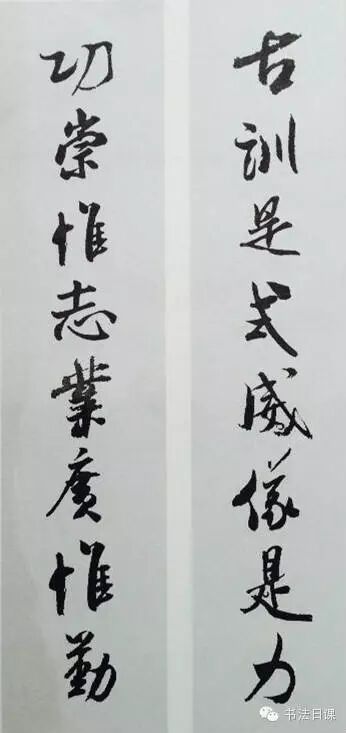 古訓是式威儀是力
功崇惟志業廣惟勤
书法日课